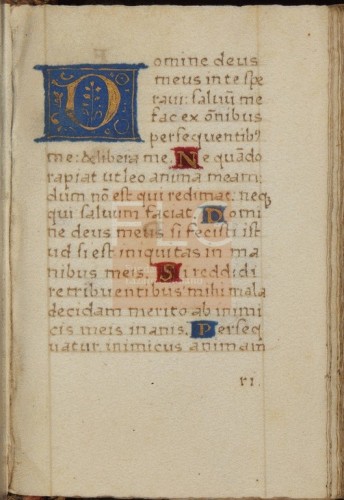 Domine deus
meus in te spe
raui: saluū me
fac ex oīnibus
persequentibꝰ
me: & libera me. Ne quādo
rapiat ut leo anima meam:
dum nō est qui redimat. neq;
qui saluum faciat. Domi
ne deus meus si feci ist
ud si est iniquitas in ma
nibus meis. Si reddidi
retribuentibus mihi mala
decidam merito ab inimi
cis meis inanis. Perseq
uatur inimicus animam